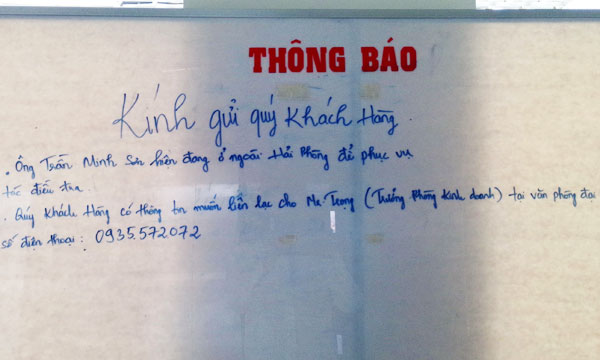 THÔNG BÁO
Kính gửi quý Khách Hàng.
. Ông Trần Minh Sơn hiện đang ở ngoài Hải Phòng để phục vụ
tác điều tra.
. Quý Khách Hàng có thông tin muốn liên lạc cho Mr. Trọng (Trưởng Phòng Kinh doanh) tại văn phòng đại
số điện thoại: 0935.572072